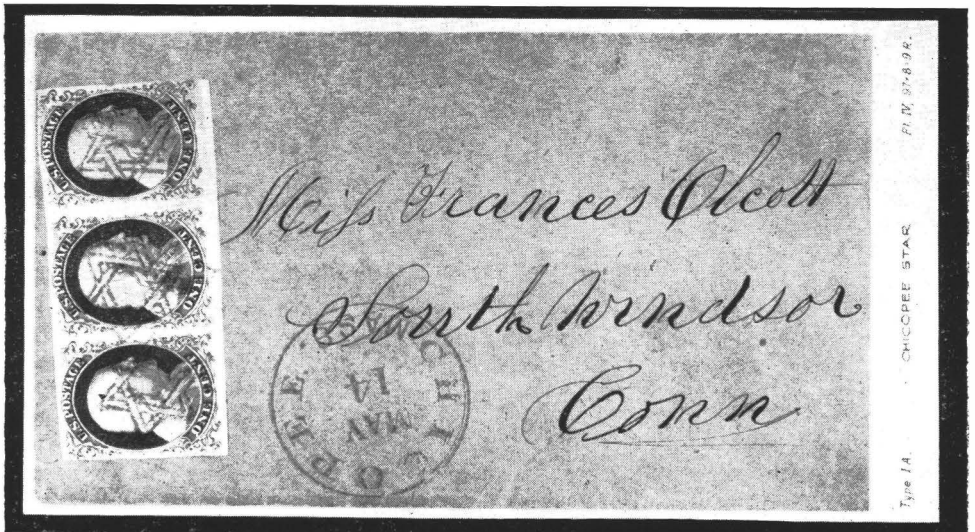 U.S. POSTAGE
ONE CENT
U.S. POSTAGE
ONE CENT
U.S. POSTAGE
ONE CENT
Miss Frances Olcott
South Windsor
Conn
CHICOPEE
MAY
14
MAS.
Type IA. CHICOPEE STAR Pl. IV, 97-8-9R.